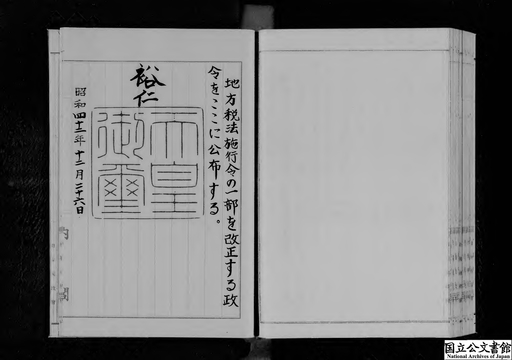 地方税法施行令の一部を改正する政
令をここに公布する。
裕仁
天皇
御璽
昭和四十二年十二月二十六日
国立公文書館
National Archives of Japan